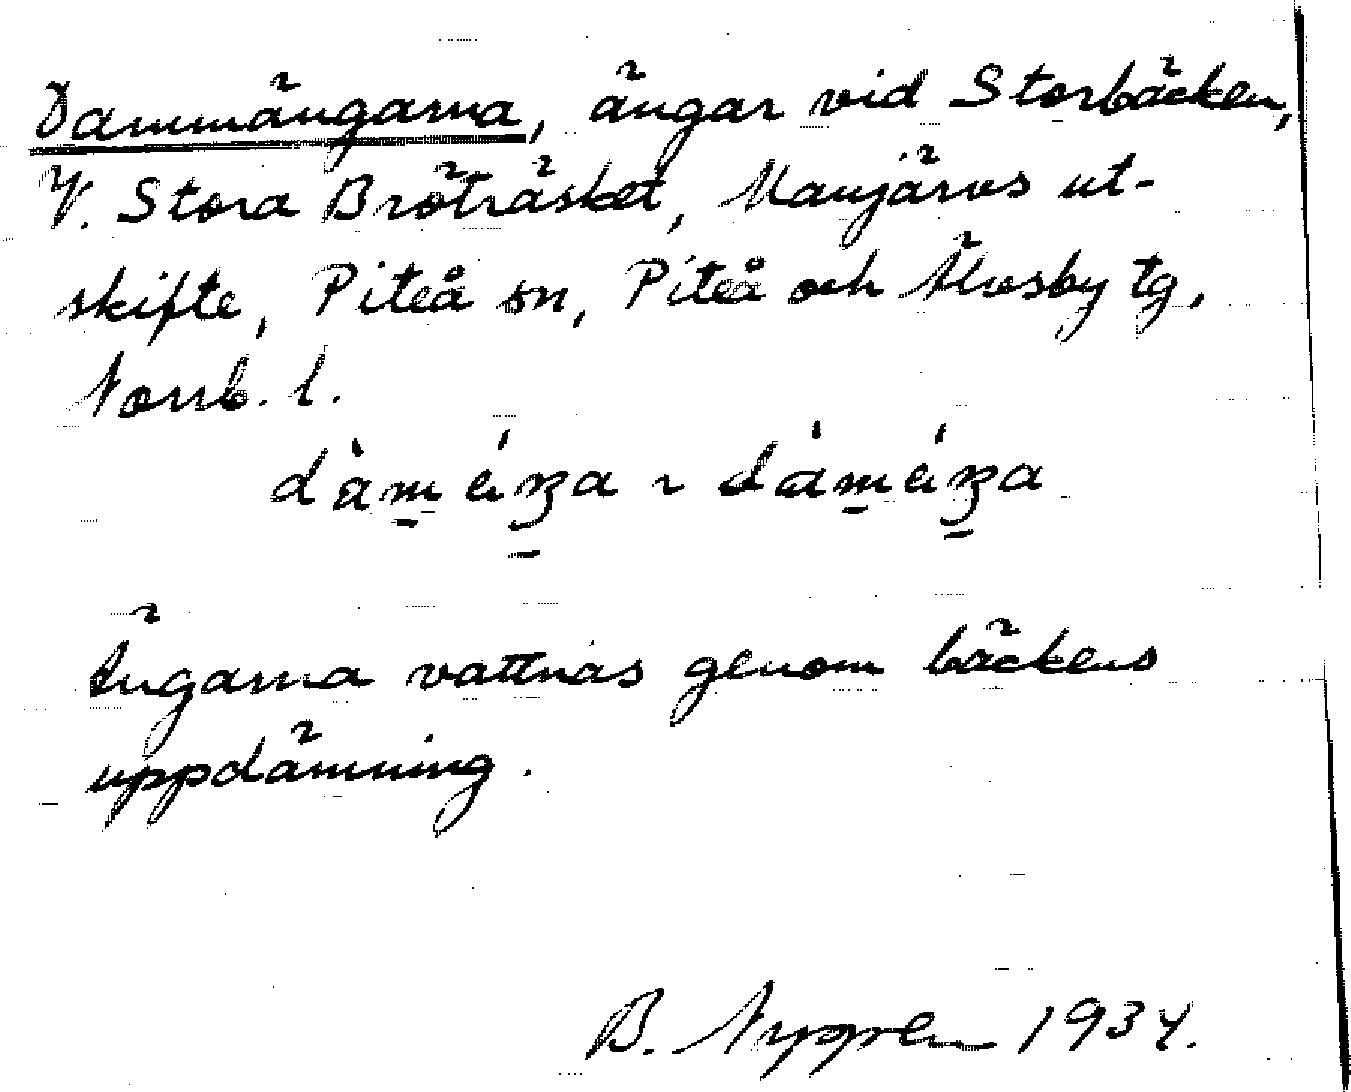 Dammängarna, ängar vid Storbäcken,
V. Stora Brötträsket, Manjärvs ut-
skifte, Piteå sn, Piteå och Älvsby tg,
Norrb. l.
Ängarna vattnas genom bäckens
uppdämning.
B. 1934.